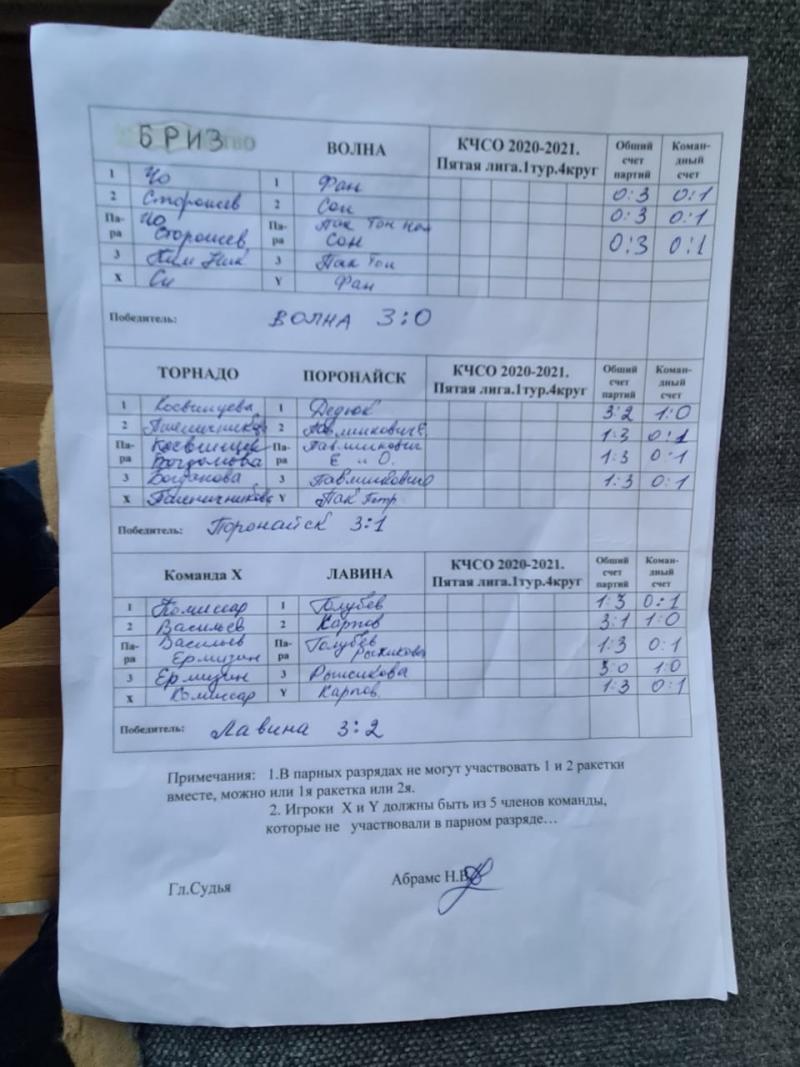 БРИЗ ВОЛНА КЧСО 2020-2021. Пятая лига.1тур.4круг Общий счет партий Коман-дный счет
1 Чо 1 Фан 0:3 0:1
2 Сторошев 2 Сон 0:3 0:1
Па-ра Чо Сторошев Па-ра Пак Тон Сон 0:3 0:1
3 Ким Ник 3 Пак Тон
X Си Y Фан
Победитель: ВОЛНА 3:0
ТОРНАДО ПОРОНАЙСК КЧСО 2020-2021. Пятая лига.1тур.4круг Общий счет партий Коман-дный счет
1 Косвинцева 1 Дедюк 3:2 1:0
2 Пшеничников 2 Павлинкович Е. 1:3 0:1
Па-ра Косвинцев Богданова Па-ра Павлинкович Е и О. 1:3 0:1
3 Богданова 3 Павлинкович О 1:3 0:1
X Пшеничников Y Пак Петр.
Победитель: Поронайск 3:1
Команда X ЛАВИНА КЧСО 2020-2021. Пятая лига.1тур.4круг Общий счет партий Коман-дный счет
1 Комиссар 1 Голубев 1:3 0:1
2 Васильев 2 Карпов 3:1 1:0
Па-ра Васильев Ермизин Па-ра Голубев Рыжикова 1:3 0:1
3 Ермизин 3 Рыжикова 3:0 1:0
X Комиссар Y Карпов. 1:3 0:1
Победитель: Лавина 3:2
Примечания: 1.В парных разрядах не могут участвовать 1 и 2 ракетки
вместе, можно или 1я ракетка или 2я.
2. Игроки X и Y должны быть из 5 членов команды,
которые не участвовали в парном разряде…
Гл.Судья Абрамс Н.В.